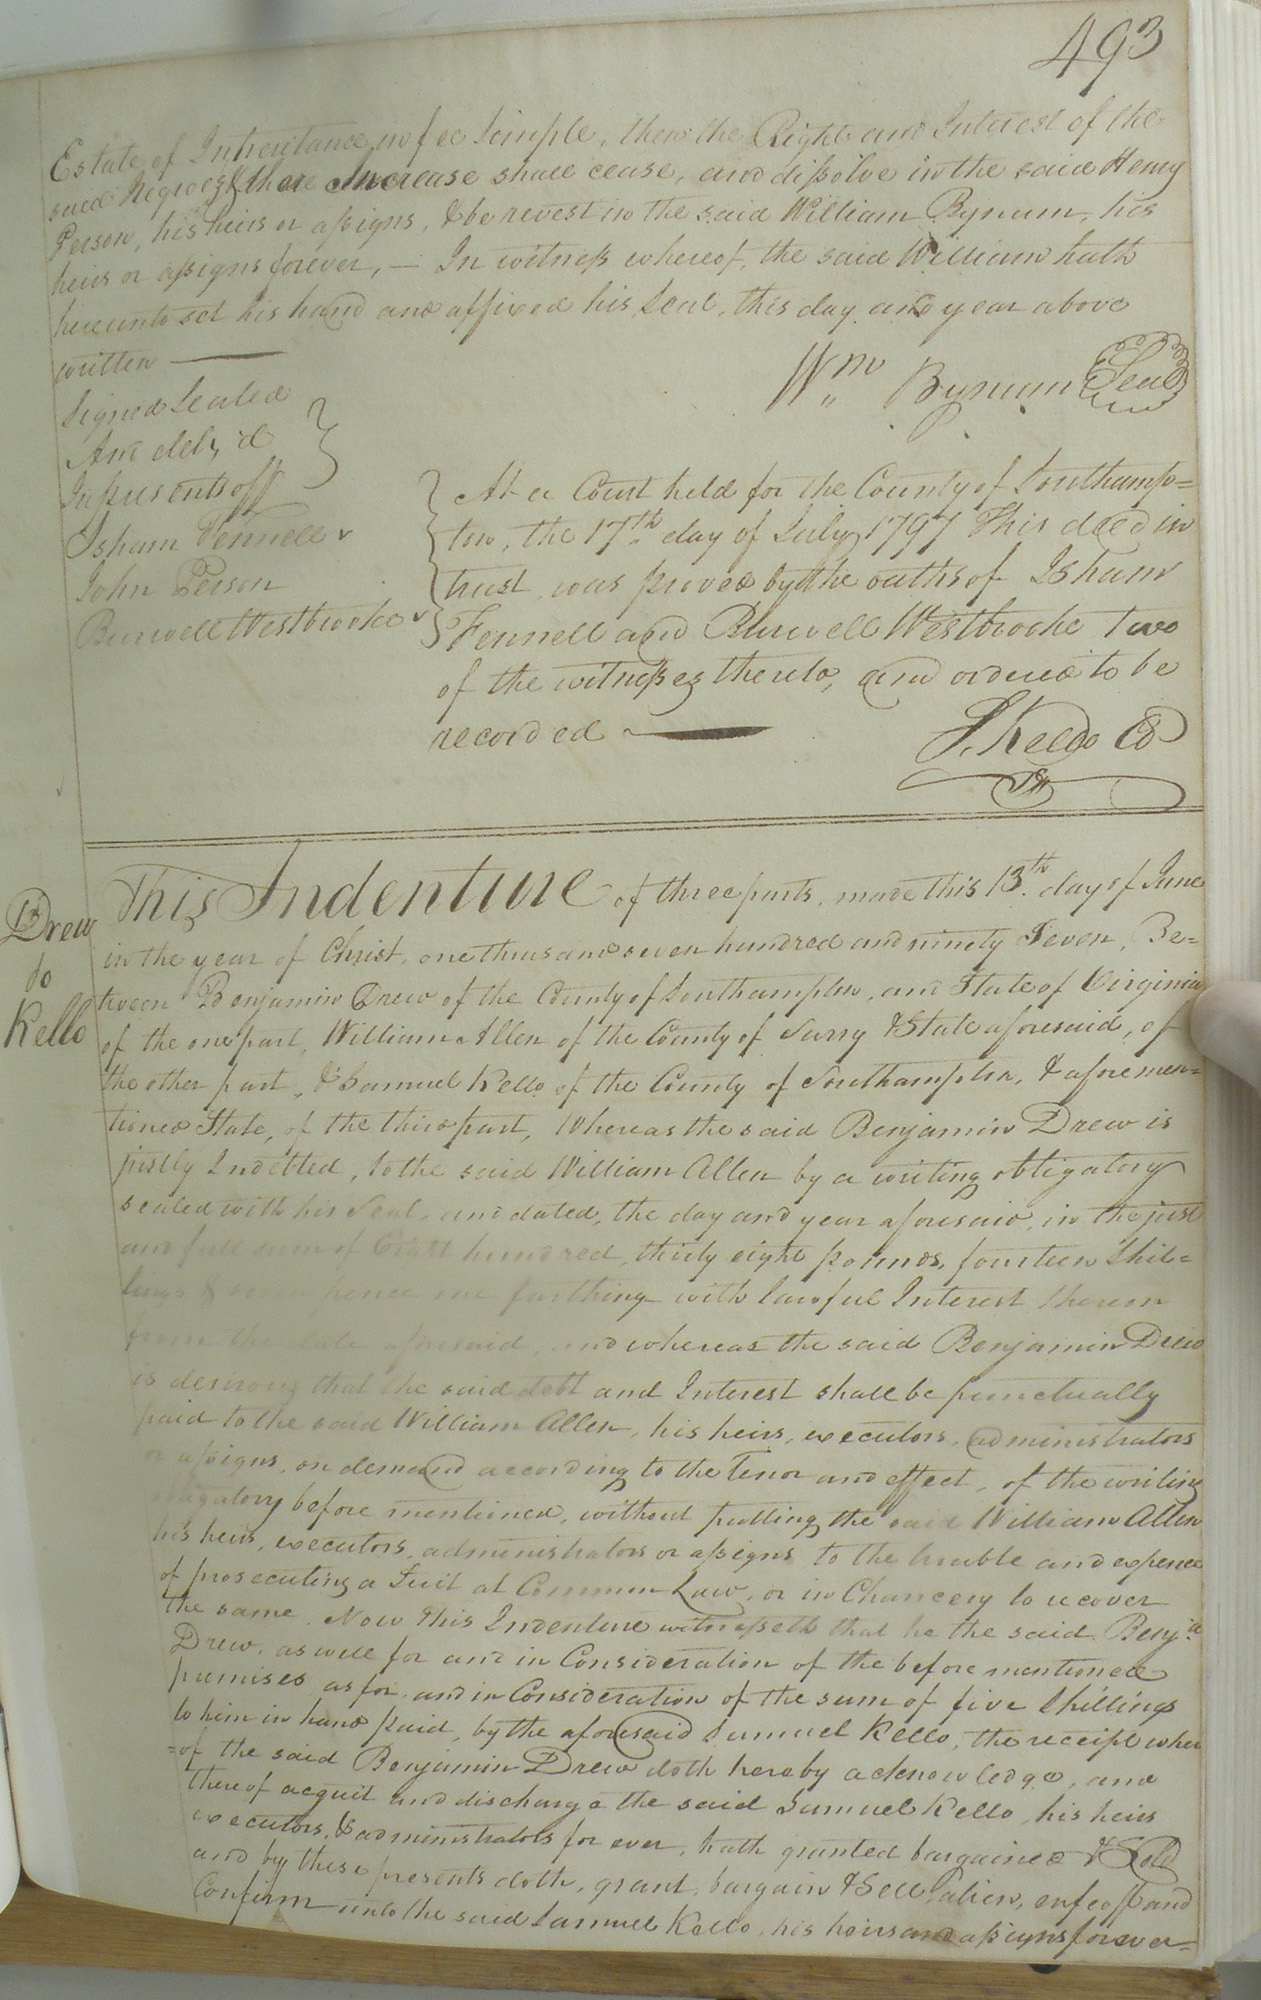 493
Estate of Inheritance, no fee Simple, then the Right and Interest of the
said Negroes & there Increase shall cease, and dissolve in the said Henry
Person, his heirs or assigns, & be revest in the said William Bynum, his
heirs or assigns forever, — In witness whereof, the said William hath
hereunto set his hand and affixed his Seal, this day and year above
written —
Signed Sealed
And deliv,'d
In presents off
Isham Fennell
John Person
Burwell Westbrooke
Wm Bynum Seal
At a Court held for the County of Southamp=
ton, the 17th day of July 1797 This deed in
trust was proved by the oaths of Isham
Fennell and Burwell Westbrooke two
of the witnesses thereto, and ordered to be
recorded —
S. Kello CC
Drew
to
Kello
This Indenture of three parts, made this 13th day of June
in the year of Christ, one thousand seven hundred and ninety Seven, Be=
tween Benjamin Drew of the County of Southampton, and State of Virginia
of the one part, William Allen of the County of Surry & State aforesaid, of
the other part, & Samuel Kello of the County of Southampton, & aforemen=
tioned State, of the third part, Whereas the said Benjamin Drew is
justly Indebted, to the said William Allen by a writing obligatory
sealed with his Seal, and dated, the day and year aforesaid, in the just
and full sum of Eight hundred, thirty eight pounds, fourteen Shil=
lings & pence one farthing with lawful Interest thereon
from the date aforesaid, and whereas the said Benjamin Drew
is desirous that the said debt and Interest shall be punctually
paid to the said William Allen, his heirs, executors, administrators
or assigns, on demand according to the Tenor and effect, of the writing
obligatory before mentioned, without putting the said William Allen
his heirs, executors, administrators or assigns to the trouble and expence
of prosecuting a Suit at Common Law, or in Chancery to recover
the same. Now This Indenture witnesseth that he the said Benja
Drew, as well for and in Consideration of the before mentioned
premises as for and in Consideration of the sum of five Shillings
to him in hand paid, by the aforesaid Samuel Kello, the receipt wher
=of the said Benjamin Drew doth hereby acknowledge, and
thereof acquit and discharge the said Samuel Kello, his heirs
executors, & administrators for ever, hath granted bargained & Sold
and by these presents doth, grant, bargain & Sell, alien, enfeoff and
Confirm unto the said Samuel Kello, his heirs and assigns forever=